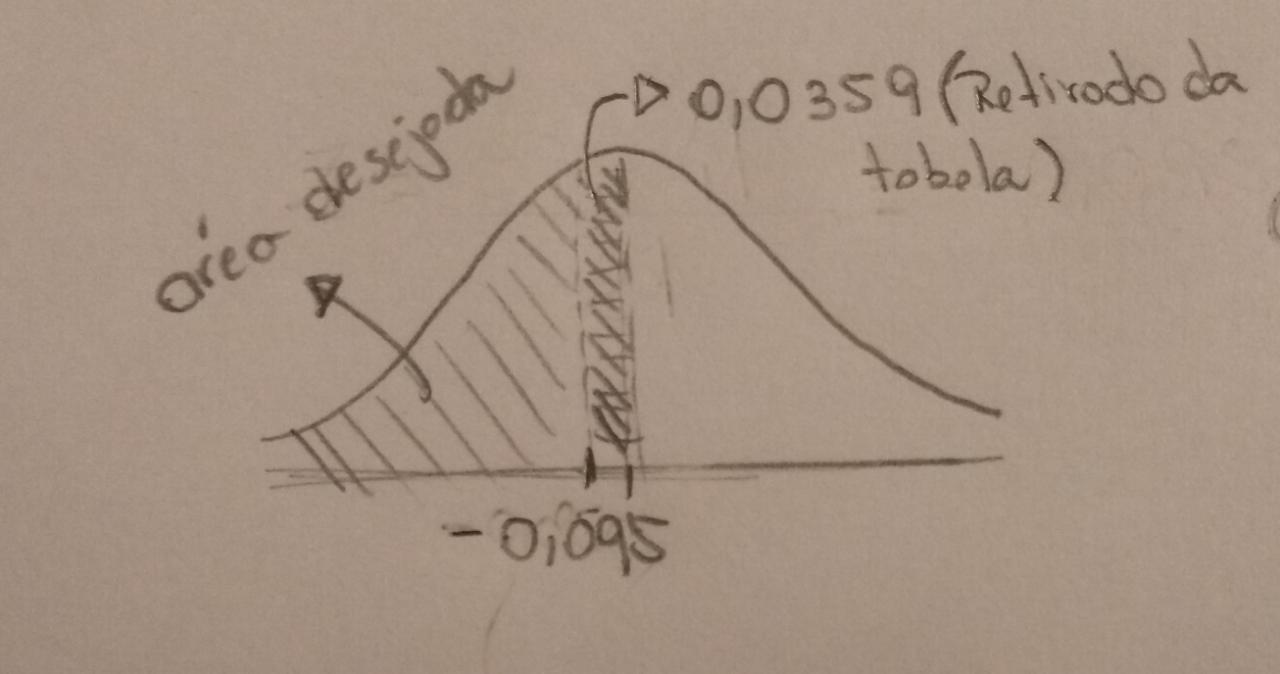 área desejada
0,0359 (Retirado da
tabela)
-0,095